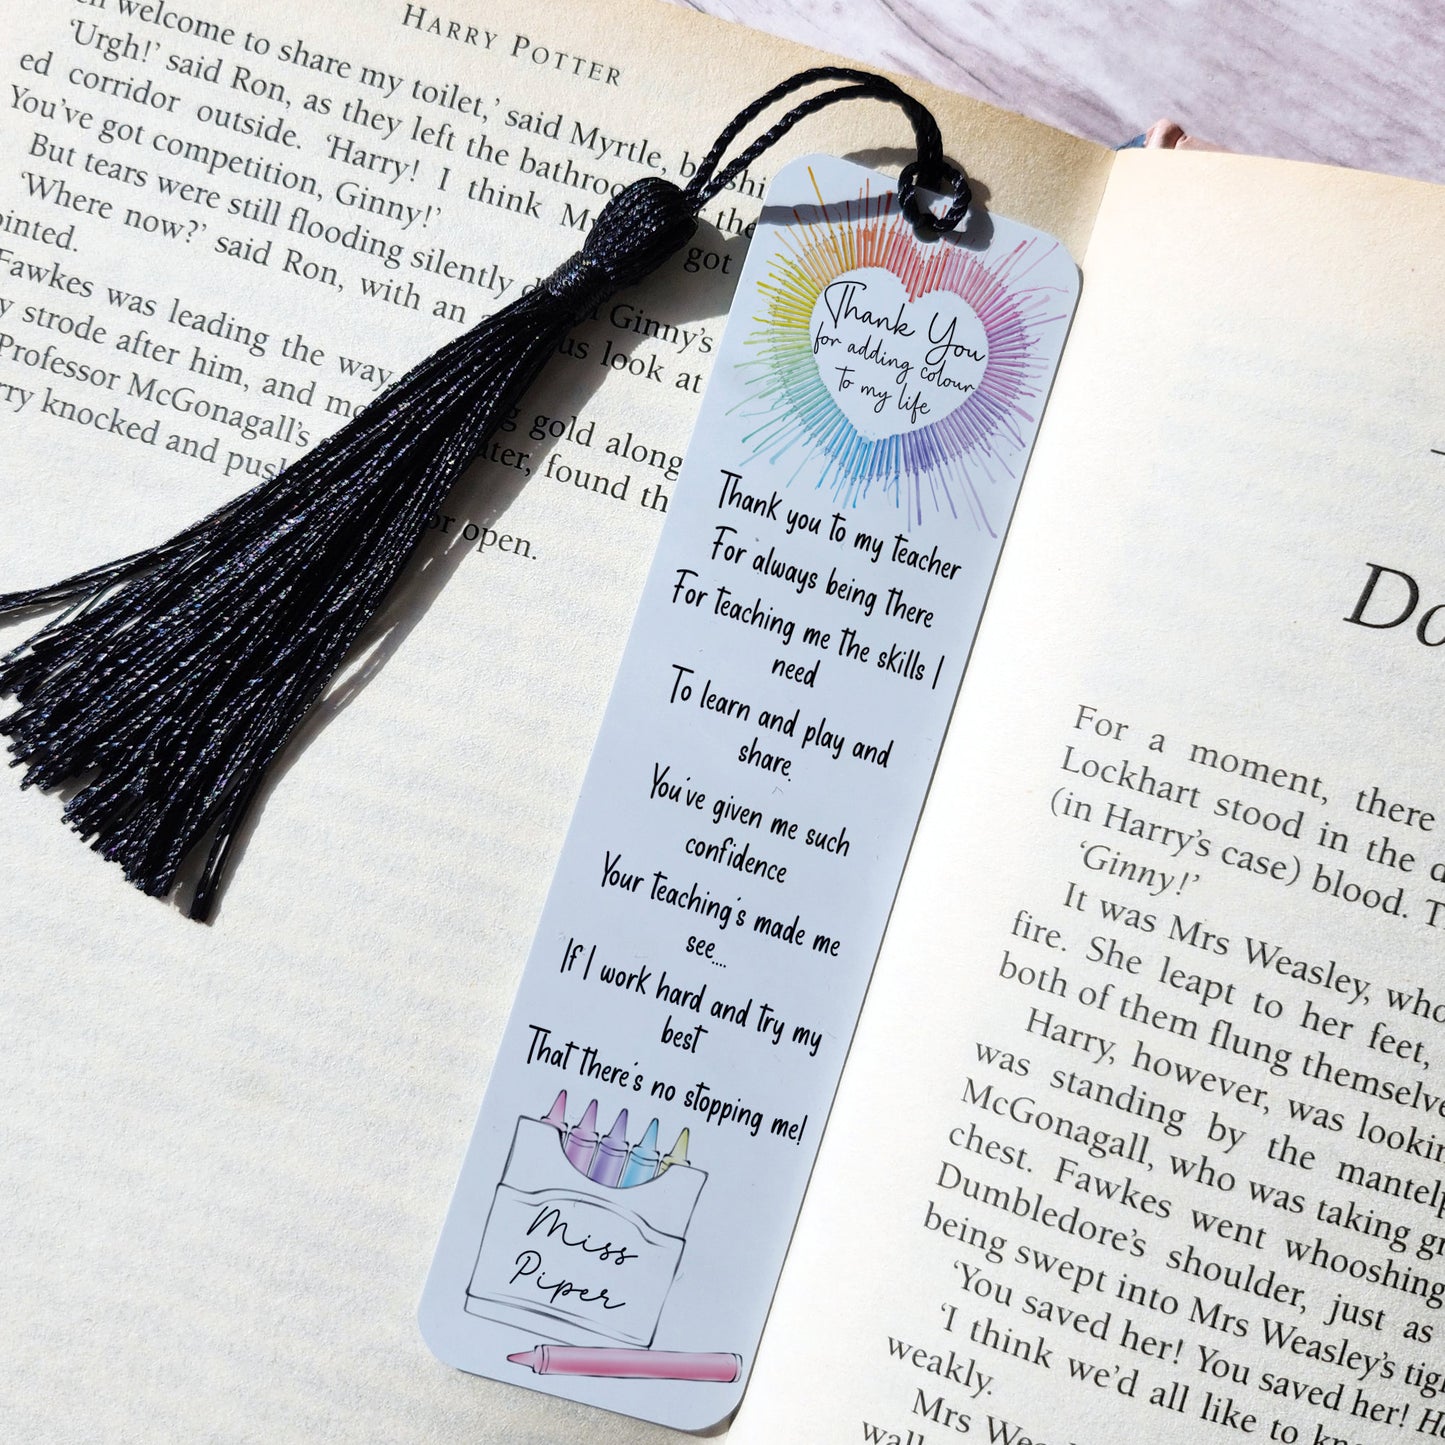 HARRY POTTER
welcome to share my toilet,' said Myrtle,
'Urgh!' said Ron, as they left the bathroo
ed corridor outside. 'Harry! I think My got
You've got competition, Ginny!'
But tears were still flooding silently Ginny's
'Where now?' said Ron, with an us look at
ointed.
Fawkes was leading the way, gold along
y strode after him, and mo ter, found th
Professor McGonagall's
rry knocked and push or open.
Thank You
for adding colour
to my life
Thank you to my teacher
For always being there
For teaching me the skills I
need
To learn and play and
share.
You've given me such
confidence
Your teaching's made me
see....
If I work hard and try my
best
That there's no stopping me!
Miss
Piper
Do
For a moment, there
Lockhart stood in the d
(in Harry's case) blood. T
'Ginny!'
It was Mrs Weasley, who
fire. She leapt to her feet,
both of them flung themselve
Harry, however, was lookin
was standing by the mantelp
McGonagall, who was taking gr
chest. Fawkes went whooshing
Dumbledore's shoulder, just as
being swept into Mrs Weasley's tigh
'You saved her! You saved her! Ho
'I think we'd all like to kn
weakly.
Mrs We
wall